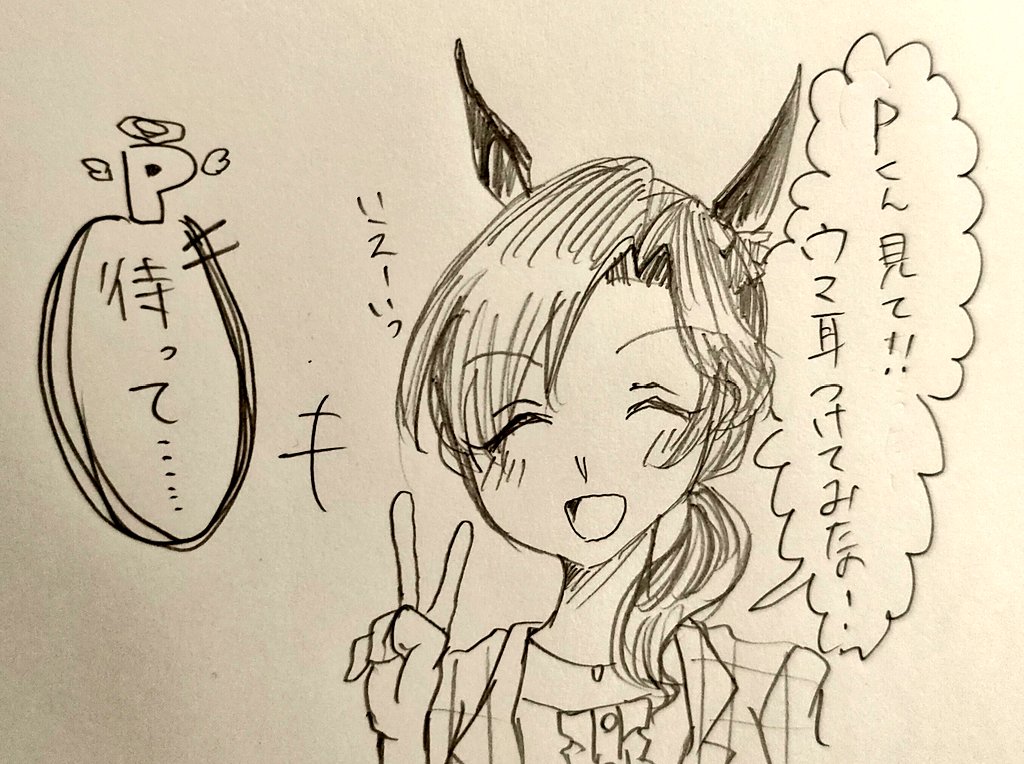 Pくん見て!!
ウマ耳つけてみたよー!
いえーいっ
キ
P
待って……